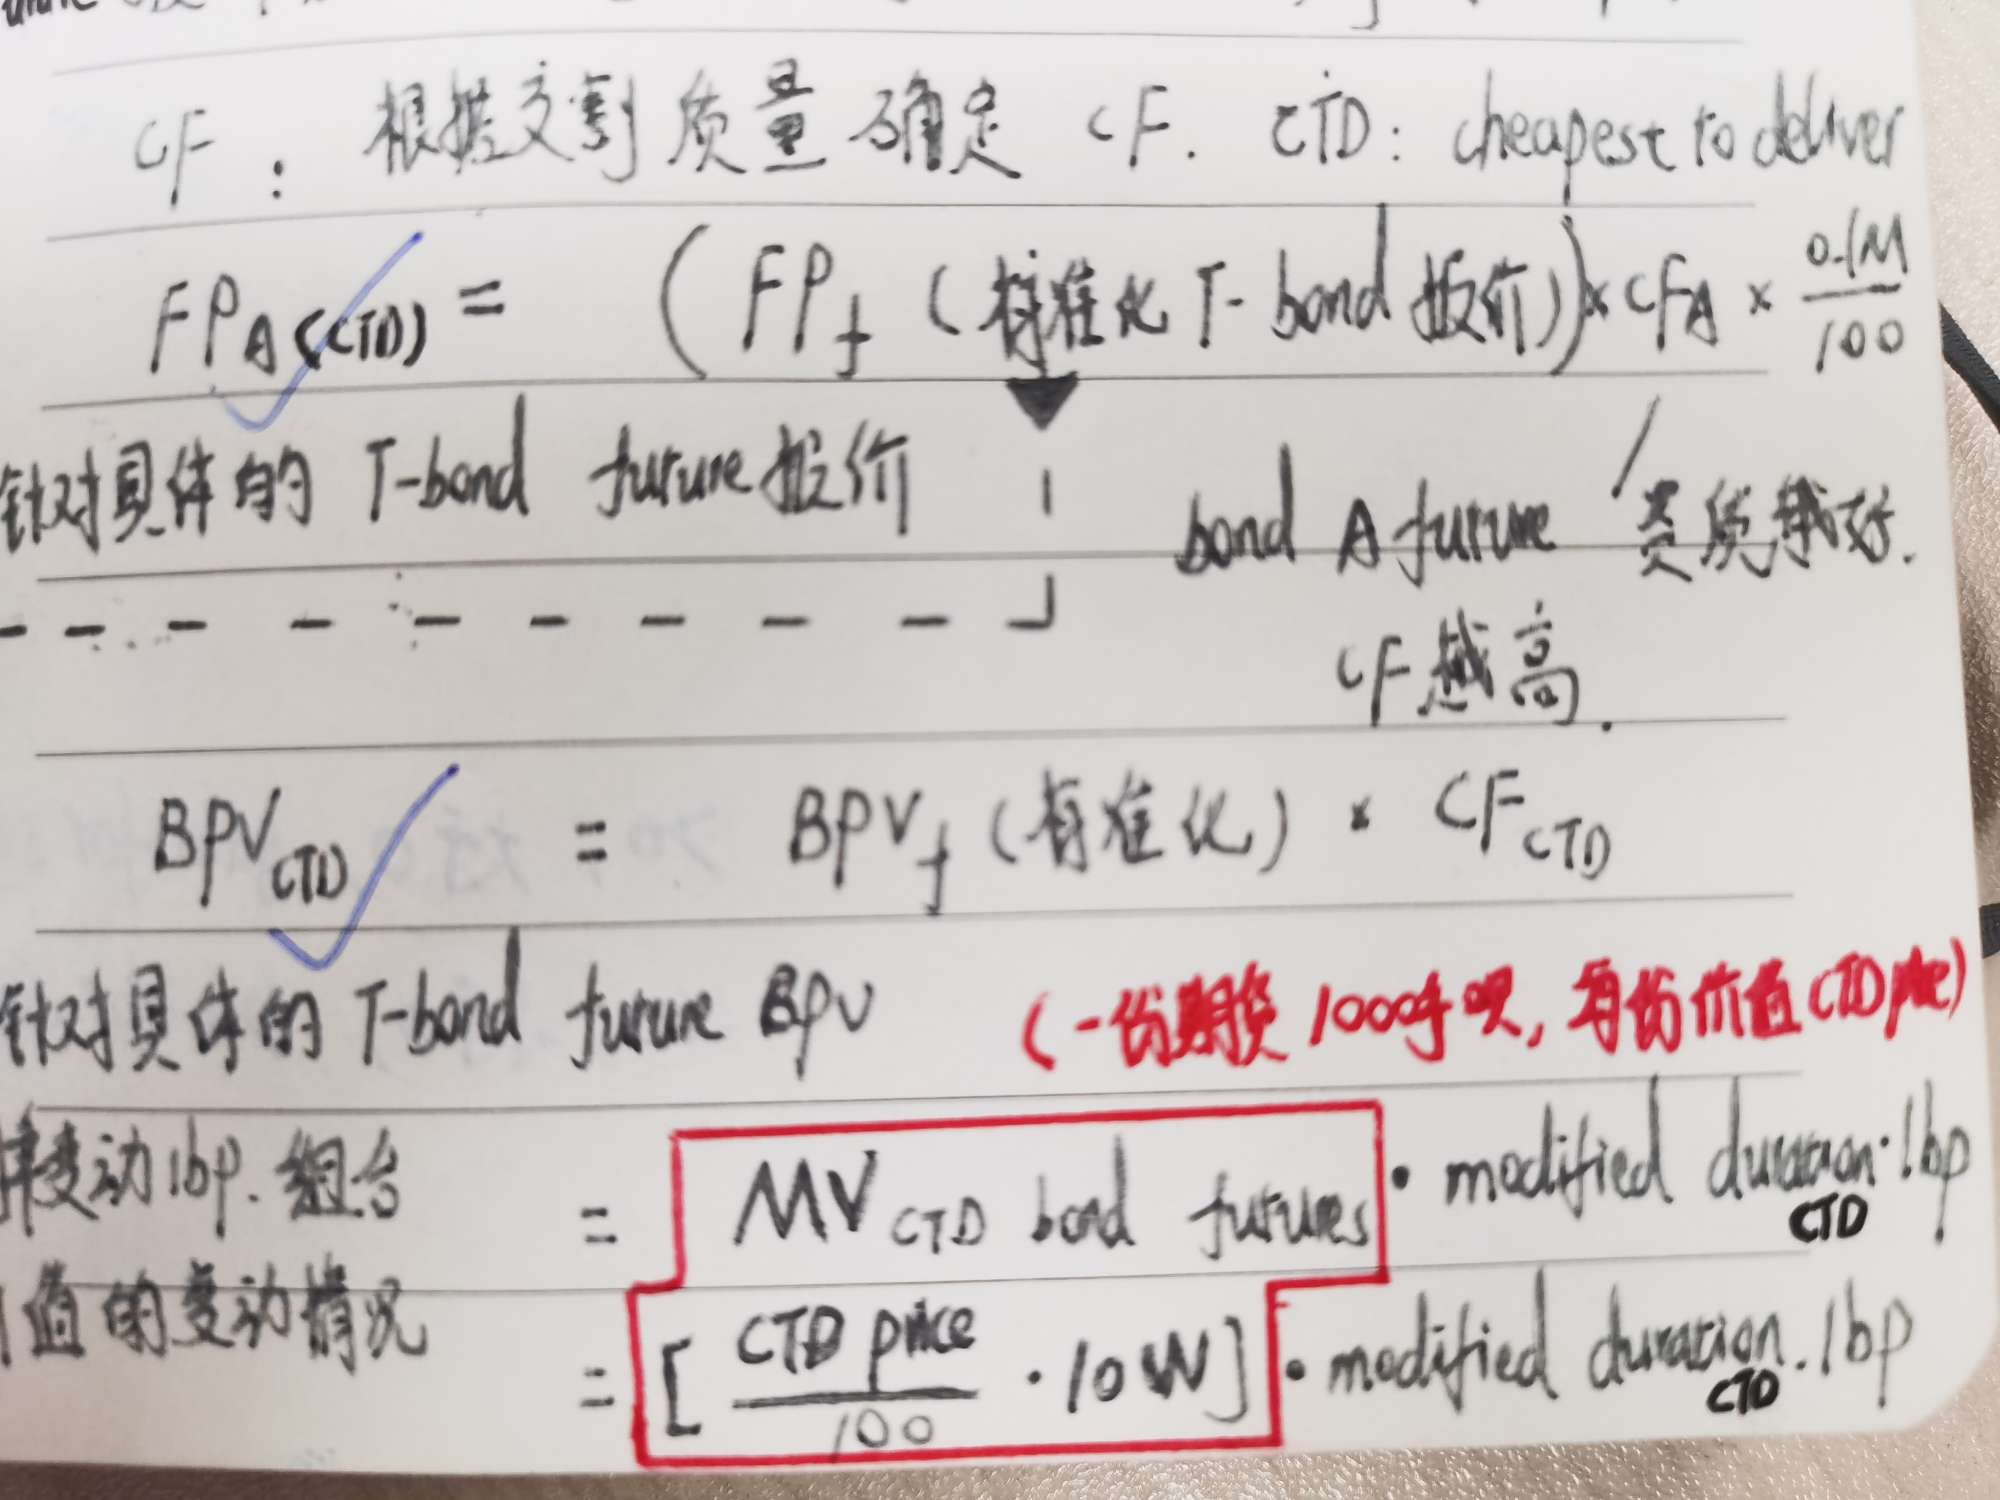 CF : 根据交割质量确定 CF. CTD: cheapest to deliver
FPA(CTD) = (FPf (标准化 T-bond 报价)) × CFA × 0.1M/100
针对具体的 T-bond future 报价
bond A future 资质越好.
CF越高.
BPVCTD = BPVf (标准化) × CFCTD
针对具体的 T-bond future BPV (一份期货 1000手呗, 每份价值 CTD price)
变动1bp. 组合
= MV CTD bond futures · modified duration CTD · 1bp
值的变动情况
= [CTD price/100 · 10W] · modified duration CTD · 1bp